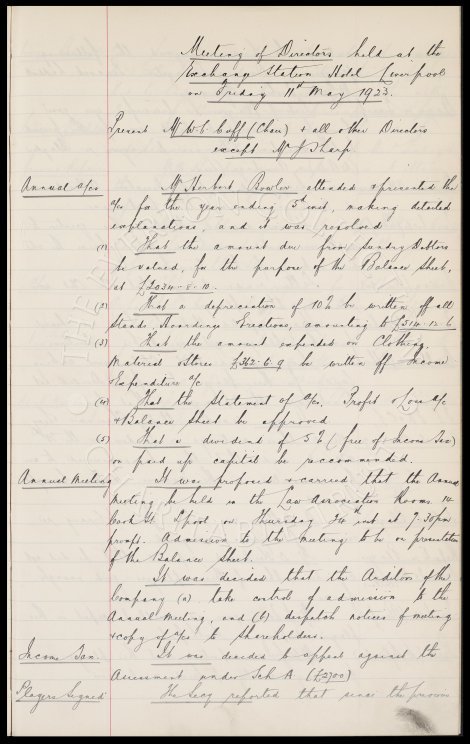 Meeting of Directors held at the
Exchange Station Hotel Liverpool
on Friday 11th May 1923.
Present Mr W. C. Cuff (Chair) & all other Directors
except Mr J Sharp
Annual a/cs Mr Herbert Rowler attended & presented the
a/cs for the year ending 5th inst, making detailed
explanations, and it was resolved
(1) That the amount due from Sundry Debtors
be valued, for the purpose of the Balance Sheet,
at £2034-8-10.
(2) That a depreciation of 10% be written off all
Stands, Hoardings Erections, amounting to £514-12-6
(3) That the amount expended on Clothing,
Material & Stores £362-6-9 be written off Income
& Expenditure a/c
(4) That the Statement of a/cs. Profit & Loss a/c
& Balance Sheet be approved
(5) That a dividend of 5% (free of Income Tax)
on paid up capital be recommended.
Annual Meeting It was proposed & carried that the Annual
Meeting be held in the Law Association Rooms 14
Cook St L'pool on Thursday 24th inst at 7.30pm
prompt. Admission to the meeting to be on presentation
of the Balance Sheet.
It was decided that the Auditors of the
Company (a) take control of admission to the
Annual Meeting, and (b) despatch notices of meeting
& copy of a/cs to Shareholders.
Income Tax. It was decided to appeal against the
Assessment under Sch A (£2700)
Players Signed The Secy reported that since the previous